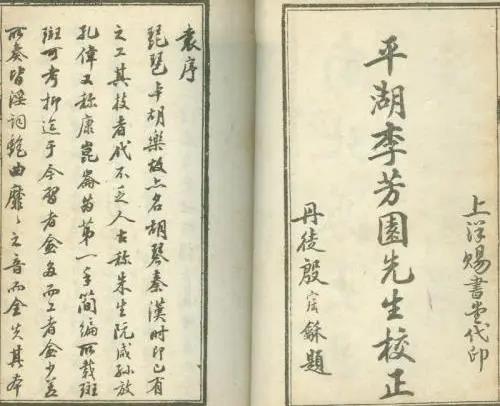 上洋賜書堂代印
平湖李芳園先生校正
丹徒殷龢題
袁序
琵琶本胡樂故亦名胡琴秦漢時即已有
之工其技者代不乏人古称朱生阮咸孫放
孔偉又称康崑崙為第一手簡編所載班
班可考抑迨于今習者愈多而工者愈少蓋
所奏皆淫詞艷曲靡〻之音而全失其本